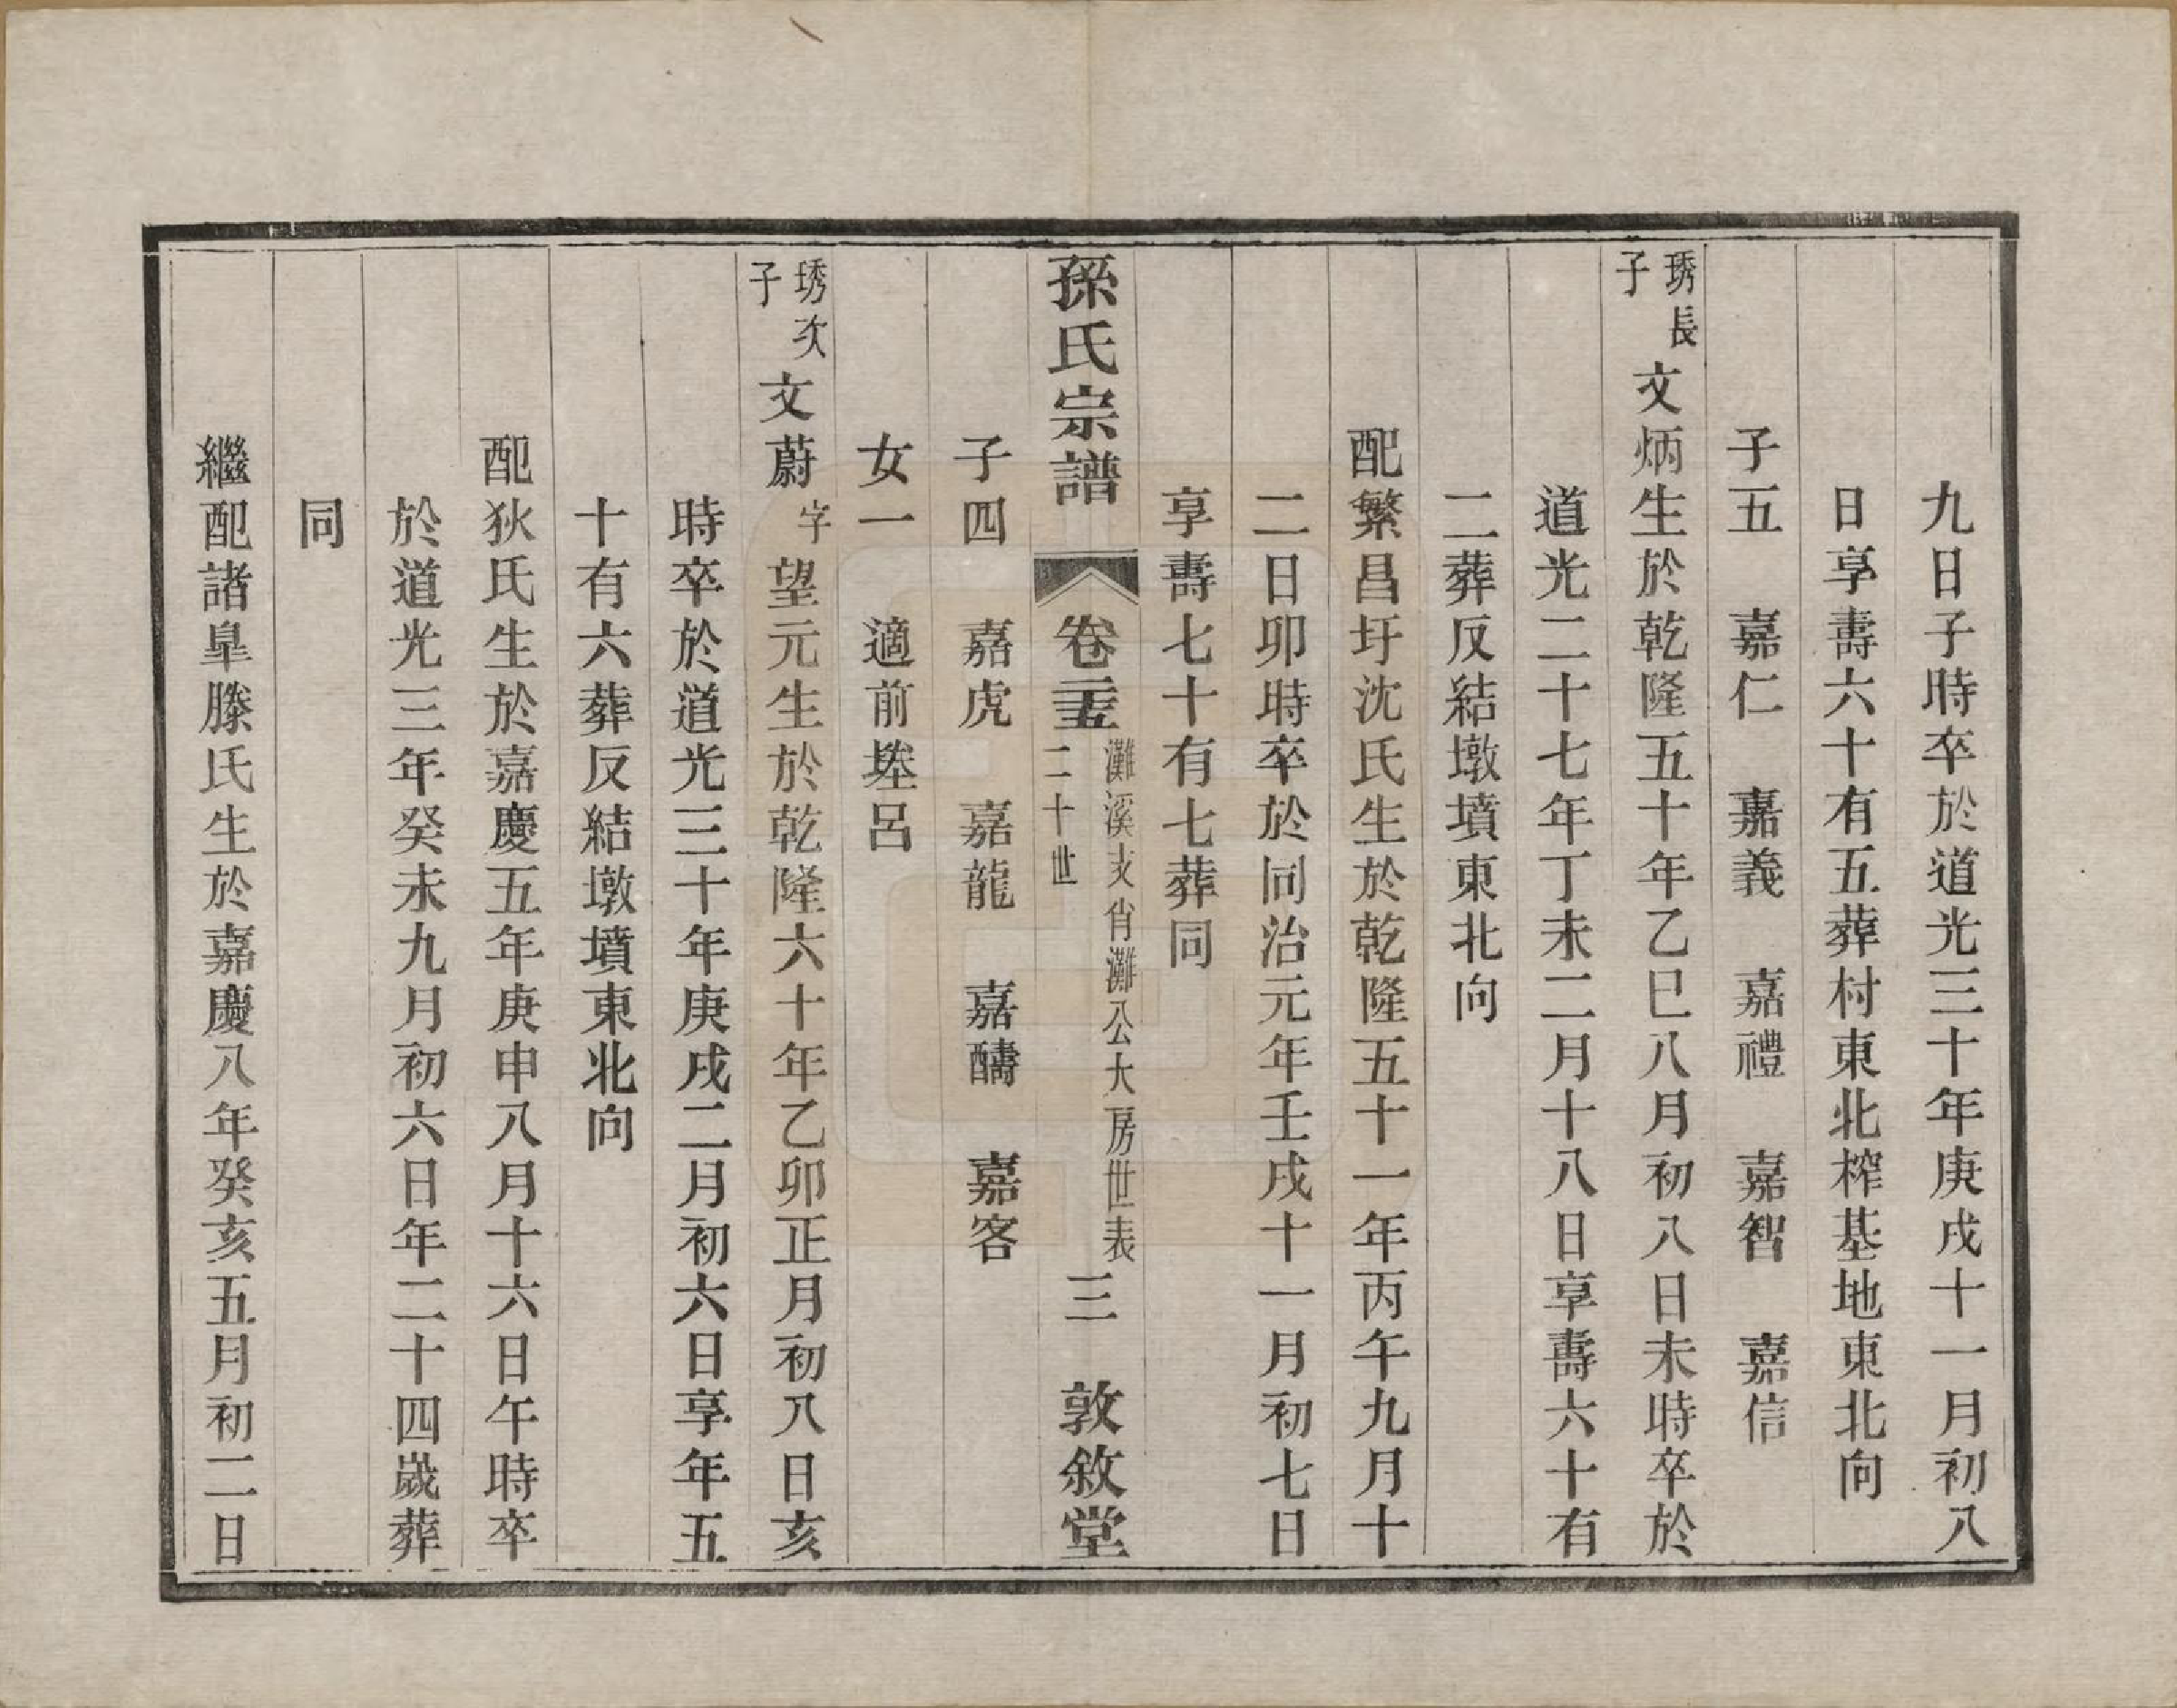 九日子時卒於道光三十年庚戌十一月初八
日享壽六十有五葬村東北榨基地東北向
子五　嘉仁　嘉義　嘉禮　嘉智　嘉信
琇長子文炳生於乾隆五十年乙巳八月初八日未時卒於
道光二十七年丁未二月十八日享壽六十有
二葬反結墩墳東北向
配繁昌圩沈氏生於乾隆五十一年丙午九月十
二日卯時卒於同治元年壬戌十一月初七日
享壽七十有七葬同
孫氏宗譜　卷二十五　灘溪支肖灘公大房世表　二十世　三　敦敘堂
子四　嘉虎　嘉龍　嘉醻　嘉客
女一　適前埜呂
琇次子文蔚字望元生於乾隆六十年乙卯正月初八日亥
時卒於道光三十年庚戌二月初六日享年五
十有六葬反結墩墳東北向
配狄氏生於嘉慶五年庚申八月十六日午時卒
於道光三年癸未九月初六日年二十四歲葬
同
繼配諸臯滕氏生於嘉慶八年癸亥五月初二日